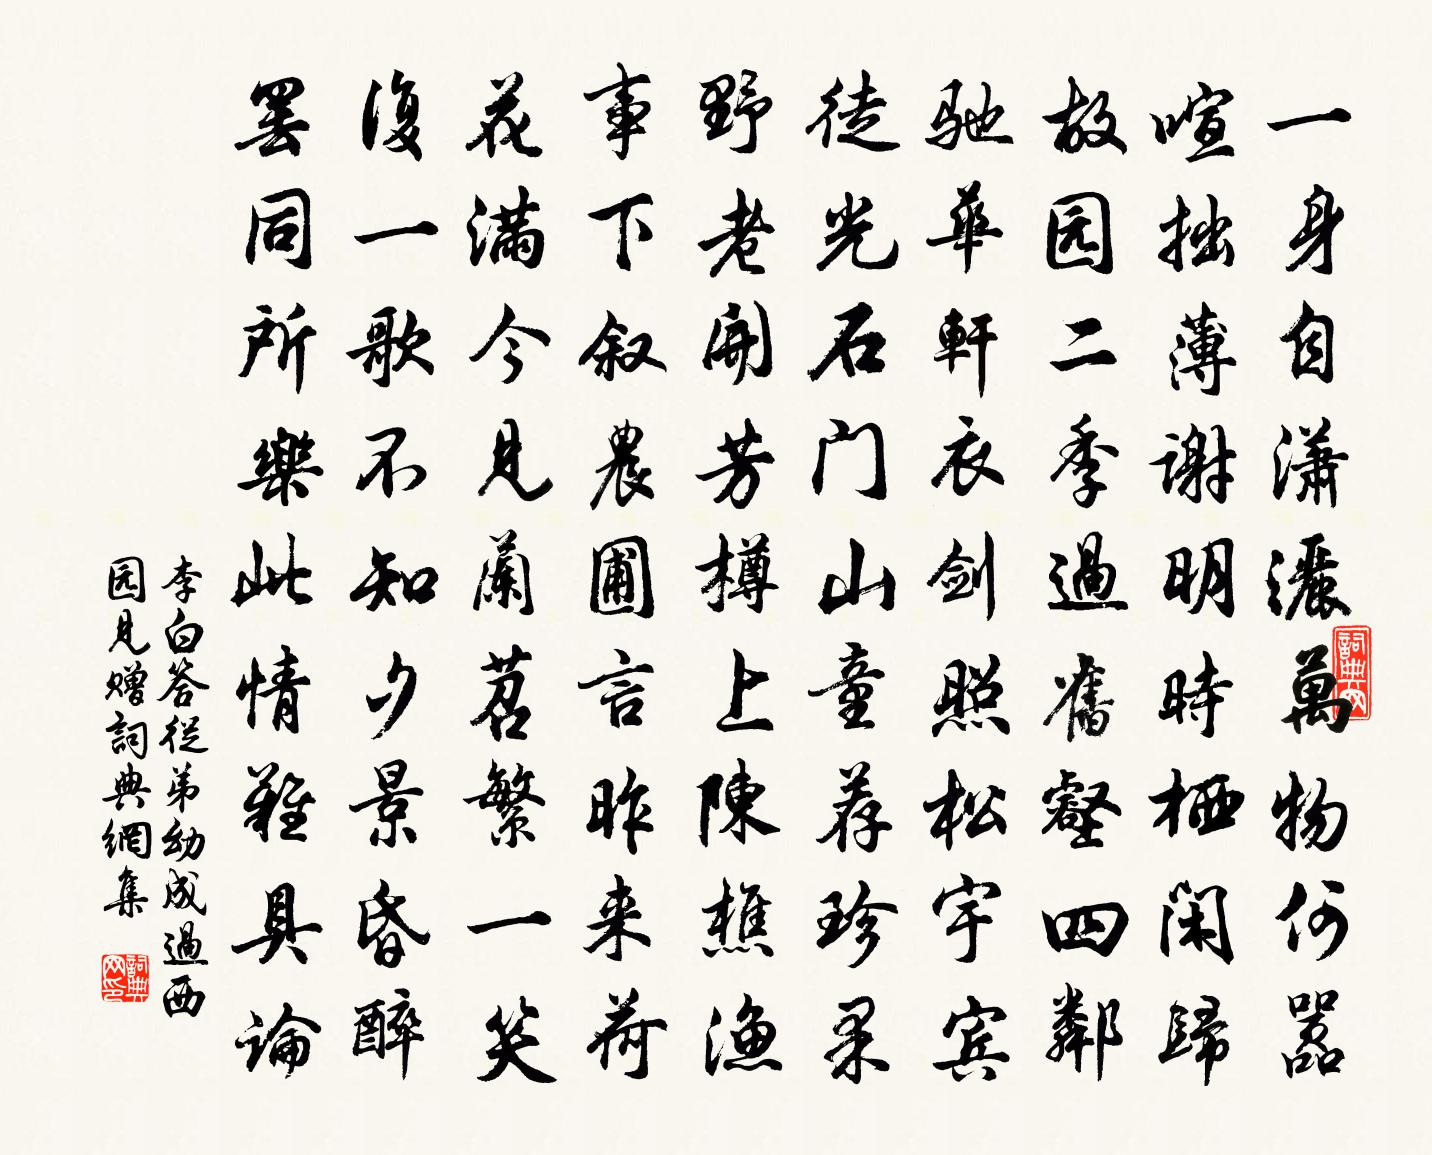 一身自瀟灑萬物何囂
喧拙薄谢明時栖闲歸
故园二季過舊壑四鄰
驰華軒衣剑照松宇宾
徒光石门山童荐珍果
野老開芳樽上陳樵渔
事下叙農圃言昨来荷
花满今見蘭苕繁一笑
復一歌不知夕景昏醉
罢同所樂此情難具論
李白答從弟幼成過西
园見赠詞典網集
詞典网
詞典网印